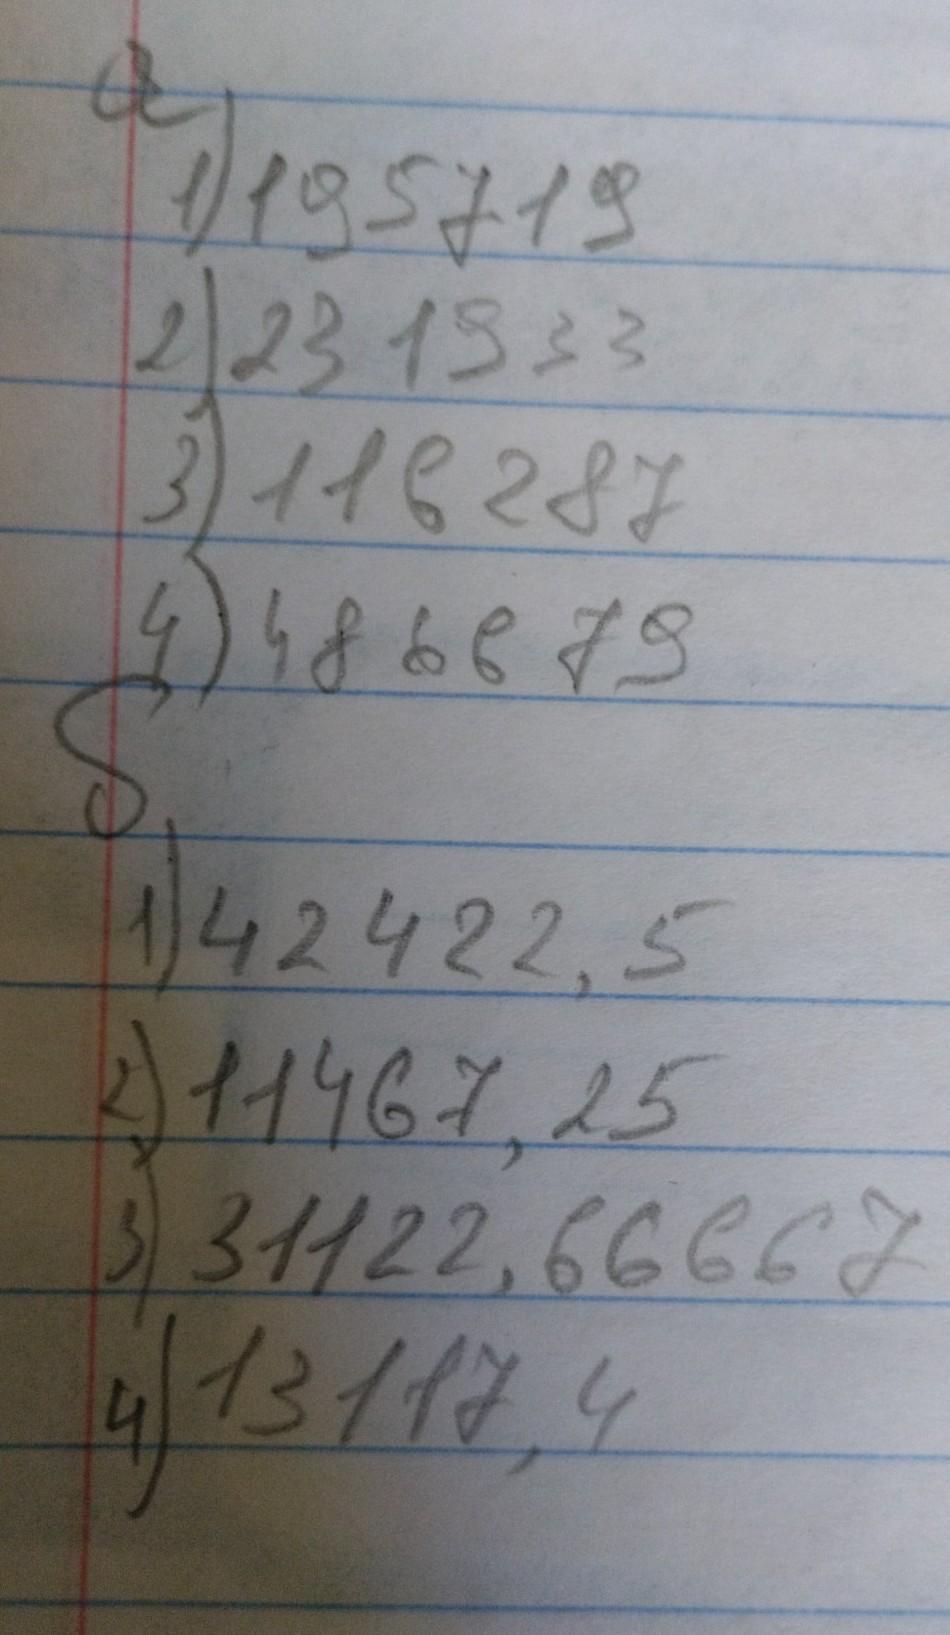 а
1) 195719
2) 231933
3) 116287
4) 486679
б.
1) 42422,5
2) 11467,25
3) 31122,66667
4) 13117,4